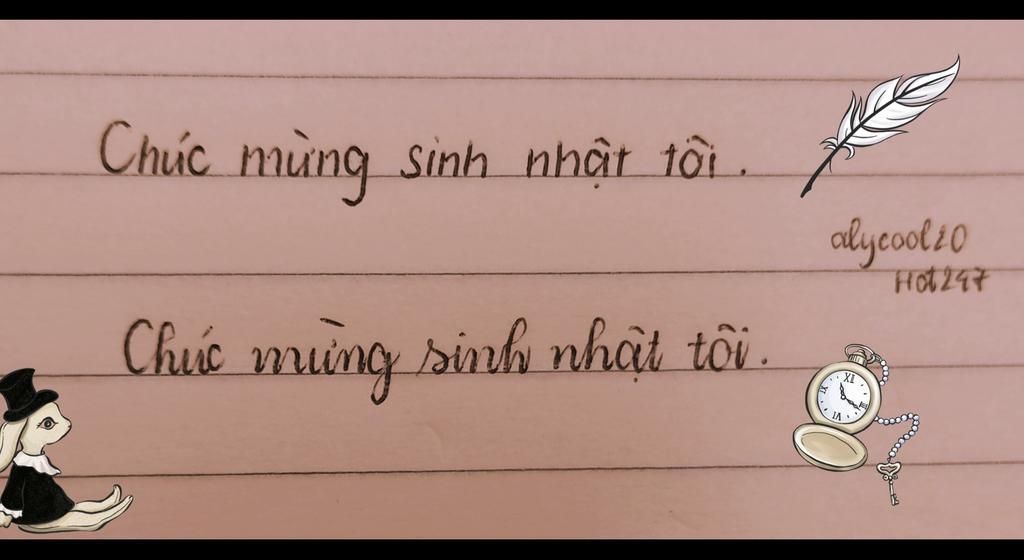 Chúc mừng sinh nhật tôi.
alycool20
Hot247
Chúc mừng sinh nhật tôi.
XII
III
VI
IX